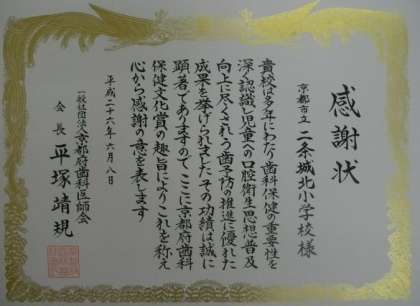 感謝状
京都市立 二条城北小学校様
貴校は多年にわたり歯科保健の重要性を
深く認識し児童への口腔衛生思想普及
向上に尽くされう歯予防の推進に優れた
成果を挙げられましたその功績は誠に
顕著でありますのでここに京都府歯科
保健文化賞の趣旨によりこれを称え
心から感謝の意を表します
平成二十六年六月八日
一般社団法人京都府歯科医師会
会長 平塚靖規